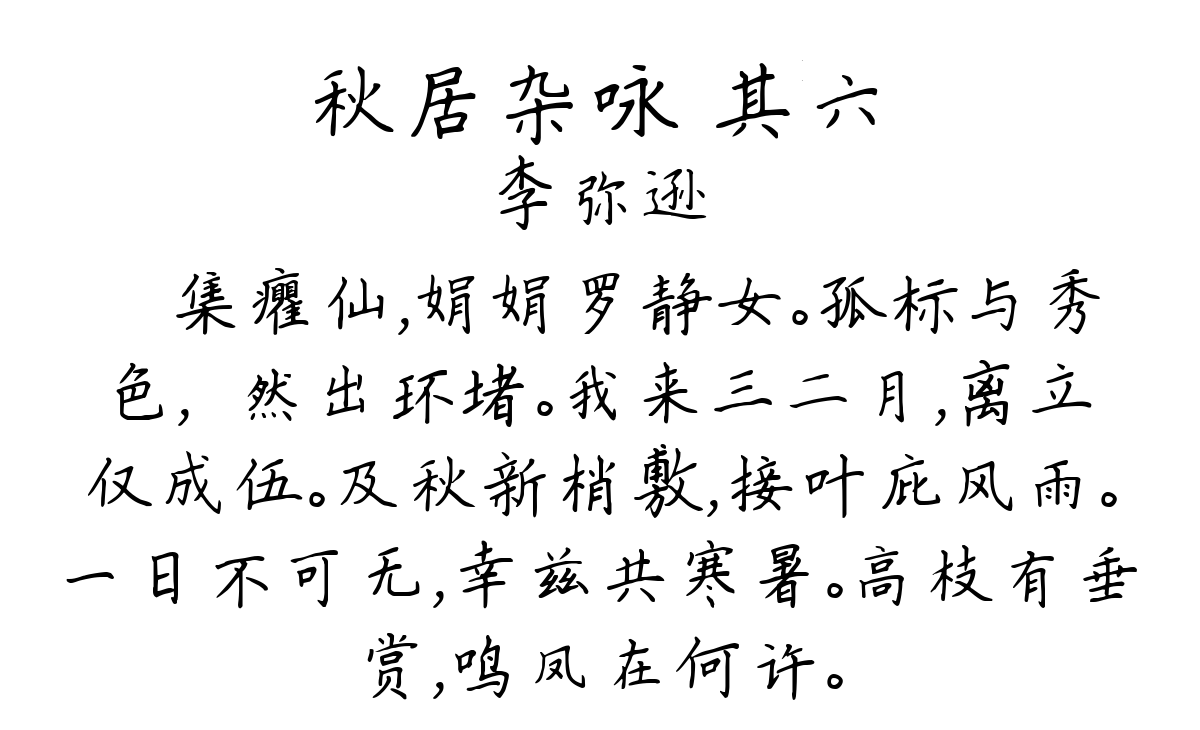 秋居杂咏 其六
李弥逊
集癯仙,娟娟罗静女。孤标与秀
色,然出环堵。我来三二月,离立
仅成伍。及秋新梢敷,接叶庇风雨。
一日不可无,幸兹共寒暑。高枝有垂
赏,鸣凤在何许。